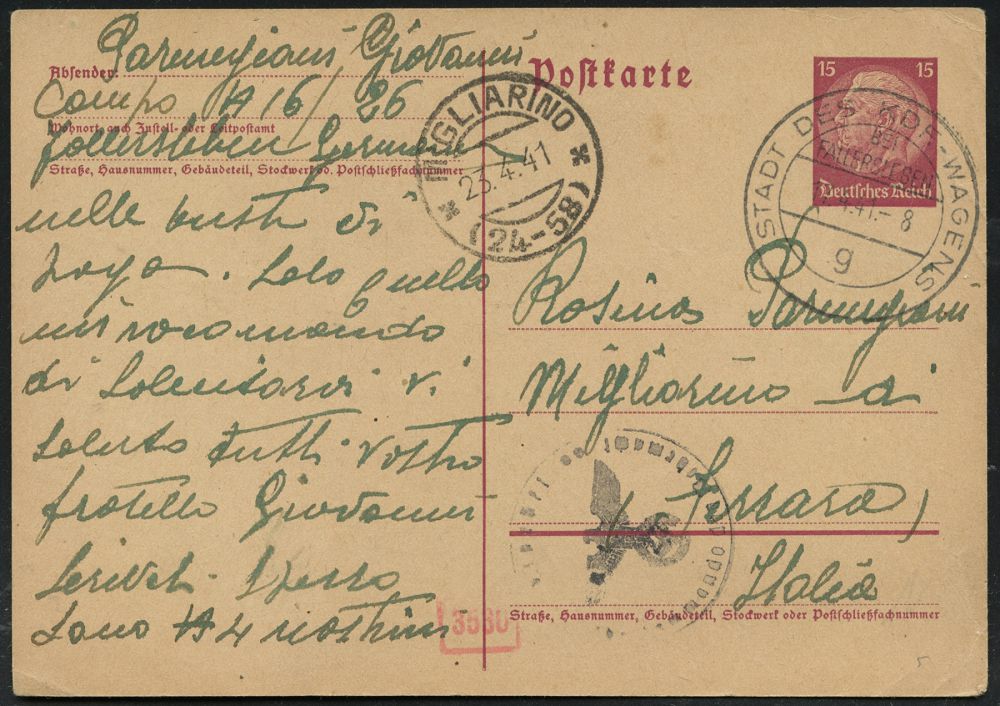 Parmegiani Giovanni
Absender:
Campo A 16/26
Wohnort, auch Zustell- oder Leitpostamt
Fallersleben Germania
Straße, Hausnummer, Gebäudeteil, Stockwerk od. Postschließfachnummer
nelle buste di
paga. Solo quello
mi racomando
di Salutarvi Vi
Saluto tutti Vostro
fratello Giovanni
Scrivet. Spesso
Sono A 4
3530
Postkarte
MIGLIARINO
23.4.41
(24-58)
15 15
Deutsches Reich
STADT DES KDF-WAGENS
BEI
FALLERSLEBEN
4.41.- 8
g
Rosina Parmegiani
Migliarino di
(Ferrara)
Italia
Oberkommando der Wehrmacht
Straße, Hausnummer, Gebäudeteil, Stockwerk oder Postschließfachnummer